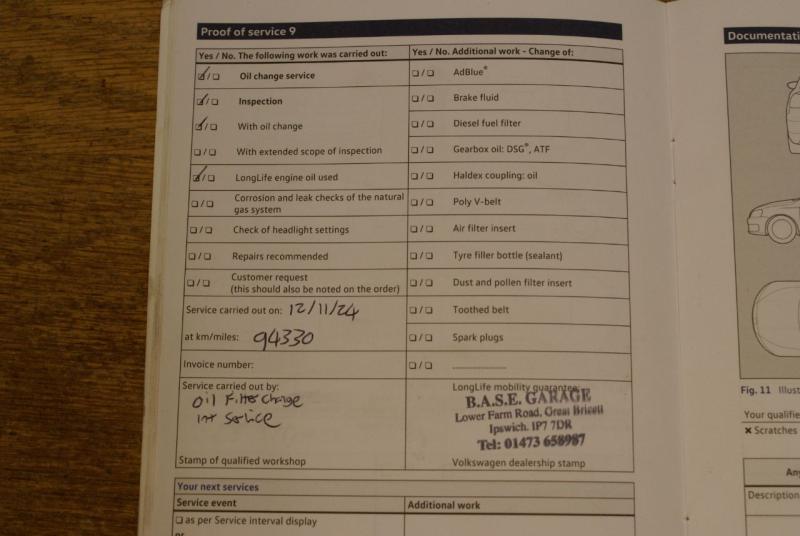 Proof of service 9
Yes / No. The following work was carried out:
☑/☐ Oil change service
☑/☐ Inspection
☑/☐ With oil change
☐/☐ With extended scope of inspection
☑/☐ LongLife engine oil used
☐/☐ Corrosion and leak checks of the natural
gas system
☐/☐ Check of headlight settings
☐/☐ Repairs recommended
☐/☐ Customer request
(this should also be noted on the order)
Service carried out on: 12/11/24
at km/miles: 94330
Invoice number:
Service carried out by:
Oil Filter Change
Int Service
Stamp of qualified workshop
Yes / No. Additional work - Change of:
☐/☐ AdBlue®
☐/☐ Brake fluid
☐/☐ Diesel fuel filter
☐/☐ Gearbox oil: DSG®, ATF
☐/☐ Haldex coupling: oil
☐/☐ Poly V-belt
☐/☐ Air filter insert
☐/☐ Tyre filler bottle (sealant)
☐/☐ Dust and pollen filter insert
☐/☐ Toothed belt
☐/☐ Spark plugs
☐/☐ ....................
LongLife mobility guarantee:
B.A.S.E. GARAGE
Lower Farm Road, Great Bricett
Ipswich. IP7 7DR
Tel: 01473 658987
Volkswagen dealership stamp
Your next services
Service event
Additional work
☐ as per Service interval display
or
Documentati
Fig. 11 Illust
Your qualifie
✖ Scratches
Any
Description